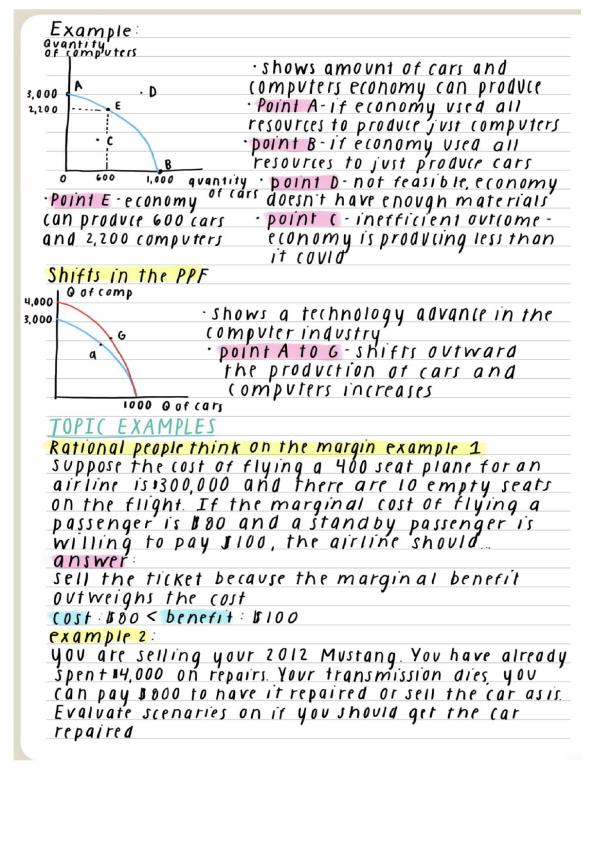 Example:
Quantity
of computers
3,000
2,200
A
E
D
C
B
0
600
1,000
quantity
of cars
· shows amount of cars and
computers economy can produce
· Point A - if economy used all
resources to produce just computers
· point B - if economy used all
resources to just produce cars
· point D - not feasible, economy
doesn't have enough materials
· point C - inefficient outcome -
economy is producing less than
it could
· Point E - economy
can produce 600 cars
and 2,200 computers
Shifts in the PPF
Q of comp
4,000
3,000
G
a
1000
Q of cars
· shows a technology advance in the
computer industry
· point A to G - shifts outward
the production of cars and
computers increases
TOPIC EXAMPLES
Rational people think on the margin example 1
Suppose the cost of flying a 400 seat plane for an
airline is $300,000 and there are 10 empty seats
on the flight. If the marginal cost of flying a
passenger is $80 and a standby passenger is
willing to pay $100, the airline should...
answer:
sell the ticket because the marginal benefit
outweighs the cost
cost : $80 < benefit : $100
example 2:
you are selling your 2012 Mustang. You have already
spent $4,000 on repairs. Your transmission dies, you
can pay $800 to have it repaired or sell the car as is.
Evaluate scenaries on if you should get the car
repaired